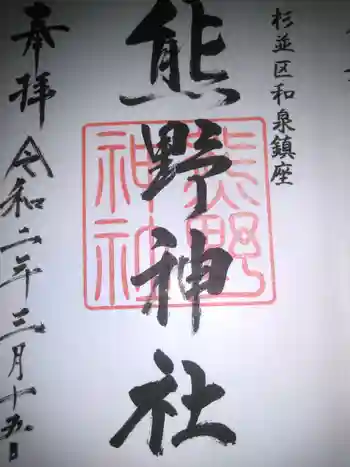 杉並区和泉鎮座
熊野神社
熊野
神社
奉拝 令和二年三月十五日